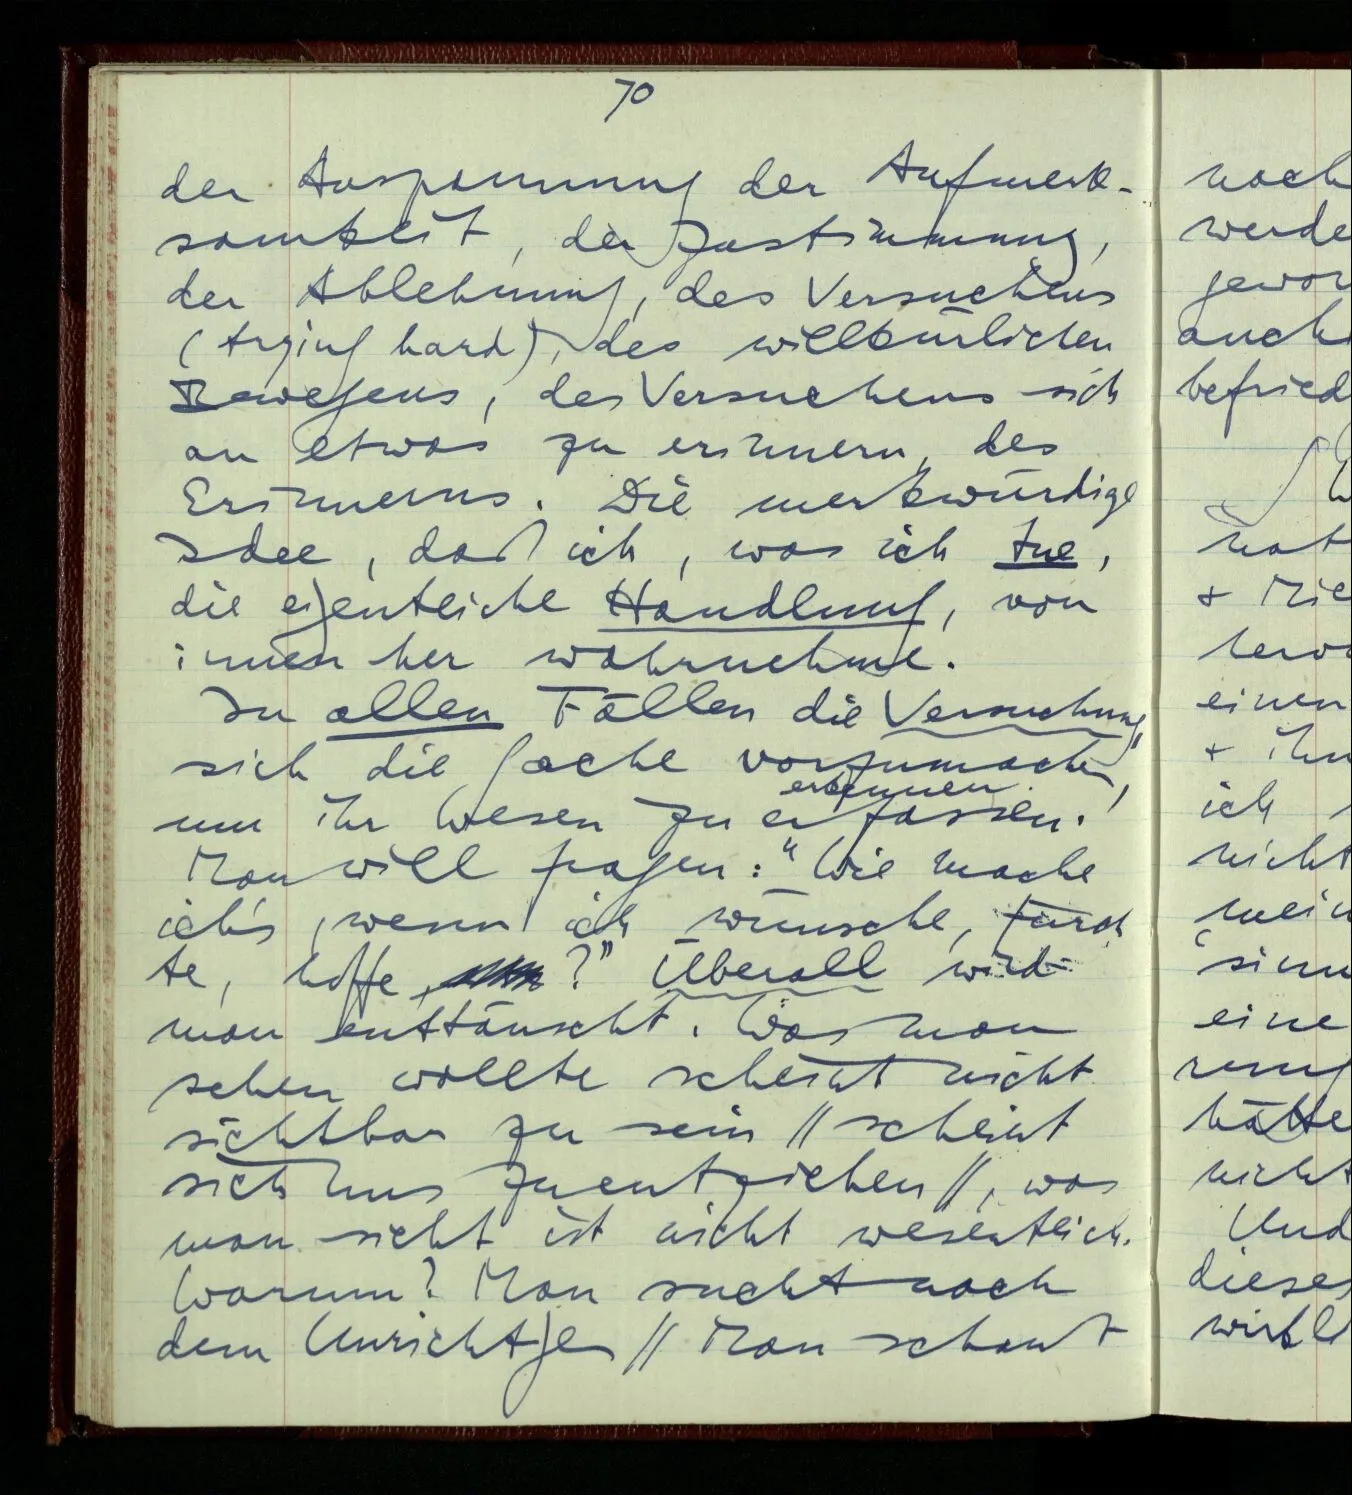 70
der Anspannung der Aufmerk-
samkeit, der Zustimmung,
der Ablehnung, des Versuchens
(trying hard), des willkürlichen
Bewegens, des Versuchens sich
an etwas zu erinnern, des
Erinnerns. Die merkwürdige
Idee, daß ich, was ich tue,
die eigentliche Handlung, von
innen her wahrnehme.
In allen Fällen die Versuchung
sich die Sache vorzumachen,
erkennen
um ihr Wesen zu erfassen.
Man will fragen: "Wie mache
ich's, wenn ich wünsche, fürch
te, hoffe, ?" Überall wird
man enttäuscht. Was man
sehen wollte scheint nicht
sichtbar zu sein // scheint
sich uns zu entziehen //, was
man sieht ist nicht wesentlich.
Warum? Man sucht nach
dem Unrichtigen // Man schaut
noch
werde
gewor
auch
befried
hat
+ Mie
hervo
einen
+ ihn
ich
nicht
mein
'sinn
eine
rung
hätte
nicht
Und
dieses
wirkl